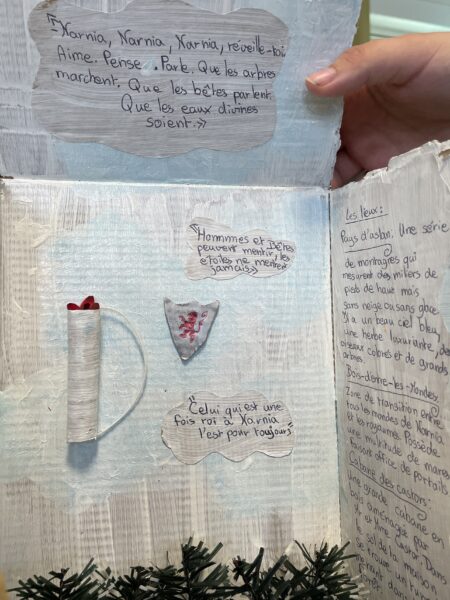 "Narnia, Narnia, Narnia, réveille-toi
Aime. Pense. Parle. Que les arbres
marchent. Que les bêtes parlent.
Que les eaux divines
soient.»
"Hommes et Bêtes
peuvent mentir, les
étoiles ne mentent
jamais»
"Celui qui est une
fois roi à Narnia
l'est pour toujours"
Les lieux:
Pays d'aslan: Une série
de montagnes qui
mesurent des milliers de
pieds de haut mais
sans neige ou sans glace
Il y a un beau ciel bleu,
une herbe luxuriante, des
oiseaux colorés et de grands
arbres.
Bois-d'entre-les-Mondes:
Zone de transition entre
tous les mondes de Narnia
et les royaumes. Possède
une multitude de mares
faisant office de portails
Cabane des castors:
Une grande cabane en
bois aménagée par
Mr et Mme Castor. Dans
le sol de la maison
se trouve un tunnel
dans